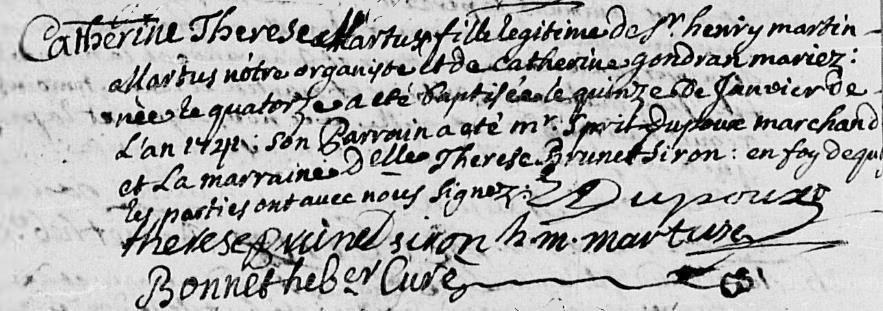 Catherine Therese Martus fille legitime de Sr. henry martin
Martus nôtre organiste et de Catherine gondran mariez:
née le quatorze a eté baptisée le quinze de Janvier de
L'an 1741: son Parrain a eté mr. Sprit Dupoux marchand
et La marraine Delle. Therese Brunet Siron: en foy dequoy
les parties ont avec nous Signez: Dupoux
therese Brunet siron h. m. marture
Bonnet heber Curé